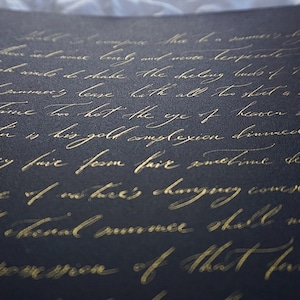 Shall I compare thee to a summer's d
art more lovely and more temperate
winds do shake the darling buds of
summer's lease hath all too short a
time too hot the eye of heaven s
n is his gold complexion dimmed
ry fair from fair sometime de
e of nature's changing cours
t eternal summer shall n
ossession of that fai